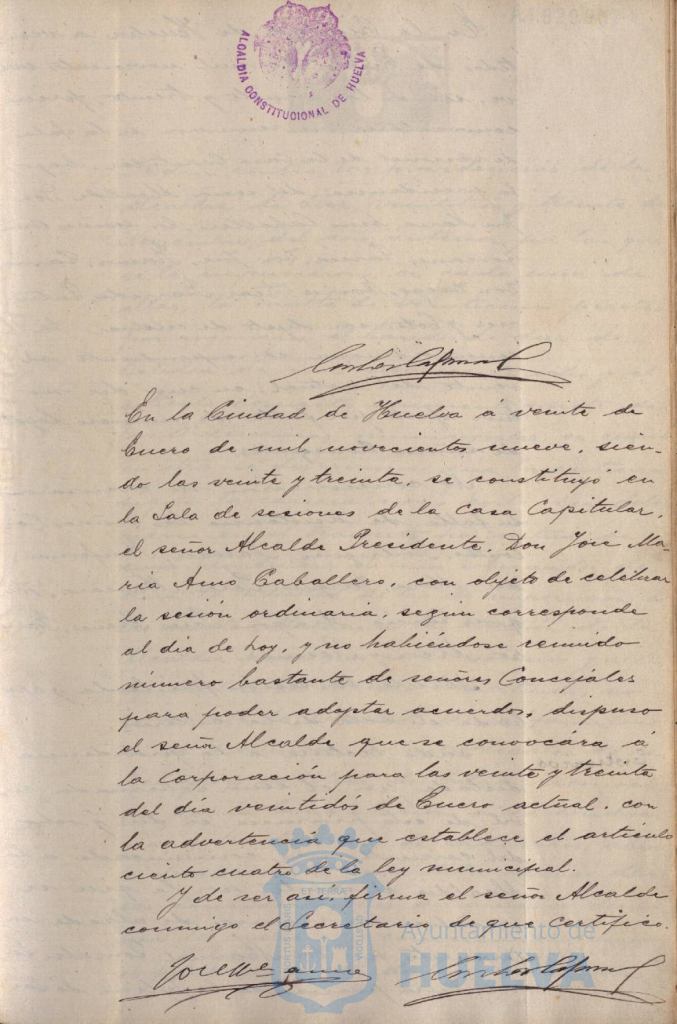 ALCALDIA CONSTITUCIONAL DE HUELVA
En la Ciudad de Huelva á veinte de
Enero de mil novecientos nueve, sien-
do las veinte y treinta, se constituyó en
la Sala de sesiones de la Casa Capitular,
el señor Alcalde Presidente, Don José Ma-
ria Amo Caballero, con objeto de celebrar
la sesión ordinaria, segun corresponde
al dia de hoy, y no habiéndose reunido
número bastante de señores Concejales
para poder adoptar acuerdos, dispuso
el señor Alcalde que se convocára á
la Corporación para las veinte y treinta
del día veintidós de Enero actual, con
la advertencia que establece el articulo
ciento cuatro de la ley municipal.
Y de ser así, firma el señor Alcalde
conmigo el Secretario de que certifico.
Ayuntamiento de
HUELVA